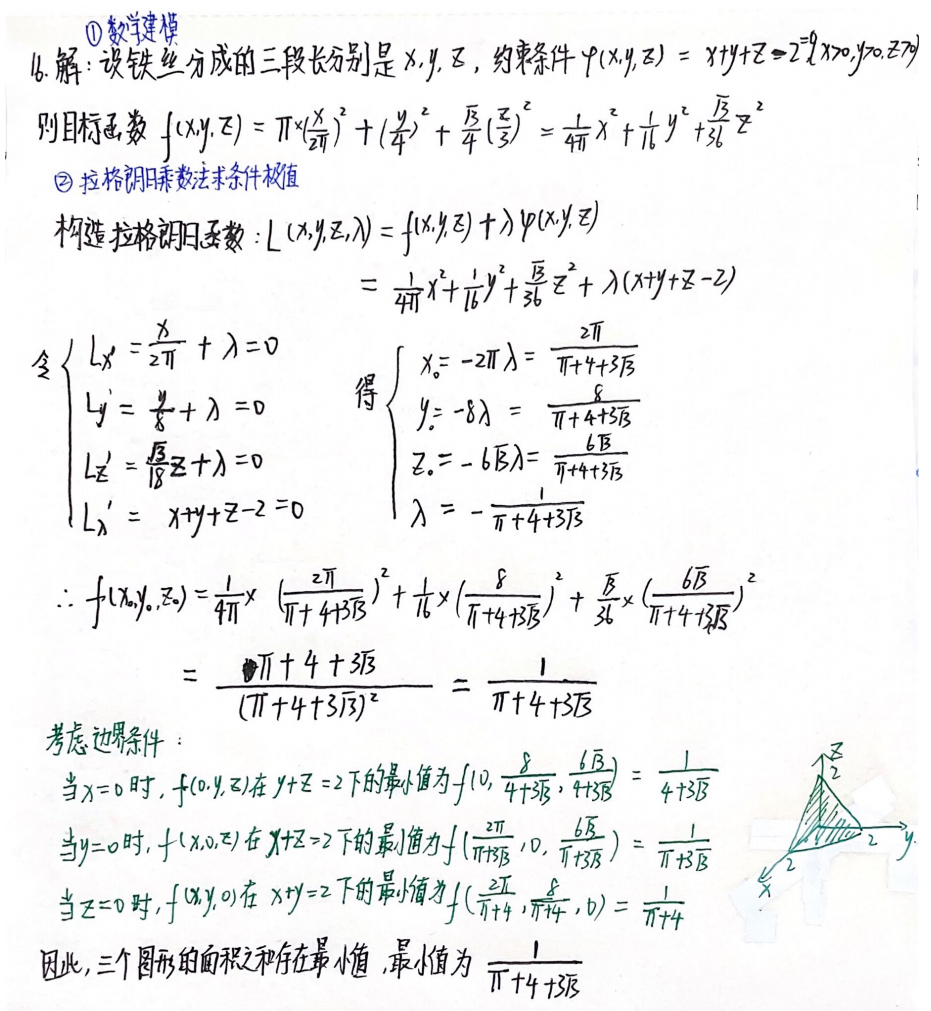 ① 数学建模
16. 解：设铁丝分成的三段长分别是 x, y, z，约束条件 φ(x,y,z) = x+y+z-2=0 (x>0, y>0, z>0)
则目标函数 f(x,y,z) = π×(x/2π)² + (y/4)² + √3/4 (z/3)² = 1/4π x² + 1/16 y² + √3/36 z²
② 拉格朗日乘数法求条件极值
构造拉格朗日函数：L(x,y,z,λ) = f(x,y,z) + λφ(x,y,z)
= 1/4π x² + 1/16 y² + √3/36 z² + λ(x+y+z-2)
令 { Lx' = x/2π + λ = 0
Ly' = y/8 + λ = 0
Lz' = √3/18 z + λ = 0
Lλ' = x+y+z-2 = 0
得 { x₀ = -2πλ = 2π/(π+4+3√3)
y₀ = -8λ = 8/(π+4+3√3)
z₀ = -6√3λ = 6√3/(π+4+3√3)
λ = - 1/(π+4+3√3)
∴ f(x₀,y₀,z₀) = 1/4π × (2π/(π+4+3√3))² + 1/16 × (8/(π+4+3√3))² + √3/36 × (6√3/(π+4+3√3))²
= (π+4+3√3)/(π+4+3√3)² = 1/(π+4+3√3)
考虑边界条件：
当x=0时，f(0,y,z)在 y+z=2下的最小值为f(0, 8/(4+3√3), 6√3/(4+3√3)) = 1/(4+3√3)
当y=0时，f(x,0,z)在 x+z=2下的最小值为f(2π/(π+3√3), 0, 6√3/(π+3√3)) = 1/(π+3√3)
当z=0时，f(x,y,0)在 x+y=2下的最小值为f(2π/(π+4), 8/(π+4), 0) = 1/(π+4)
z
2
2
y
2
x
因此，三个图形的面积之和存在最小值，最小值为 1/(π+4+3√3)